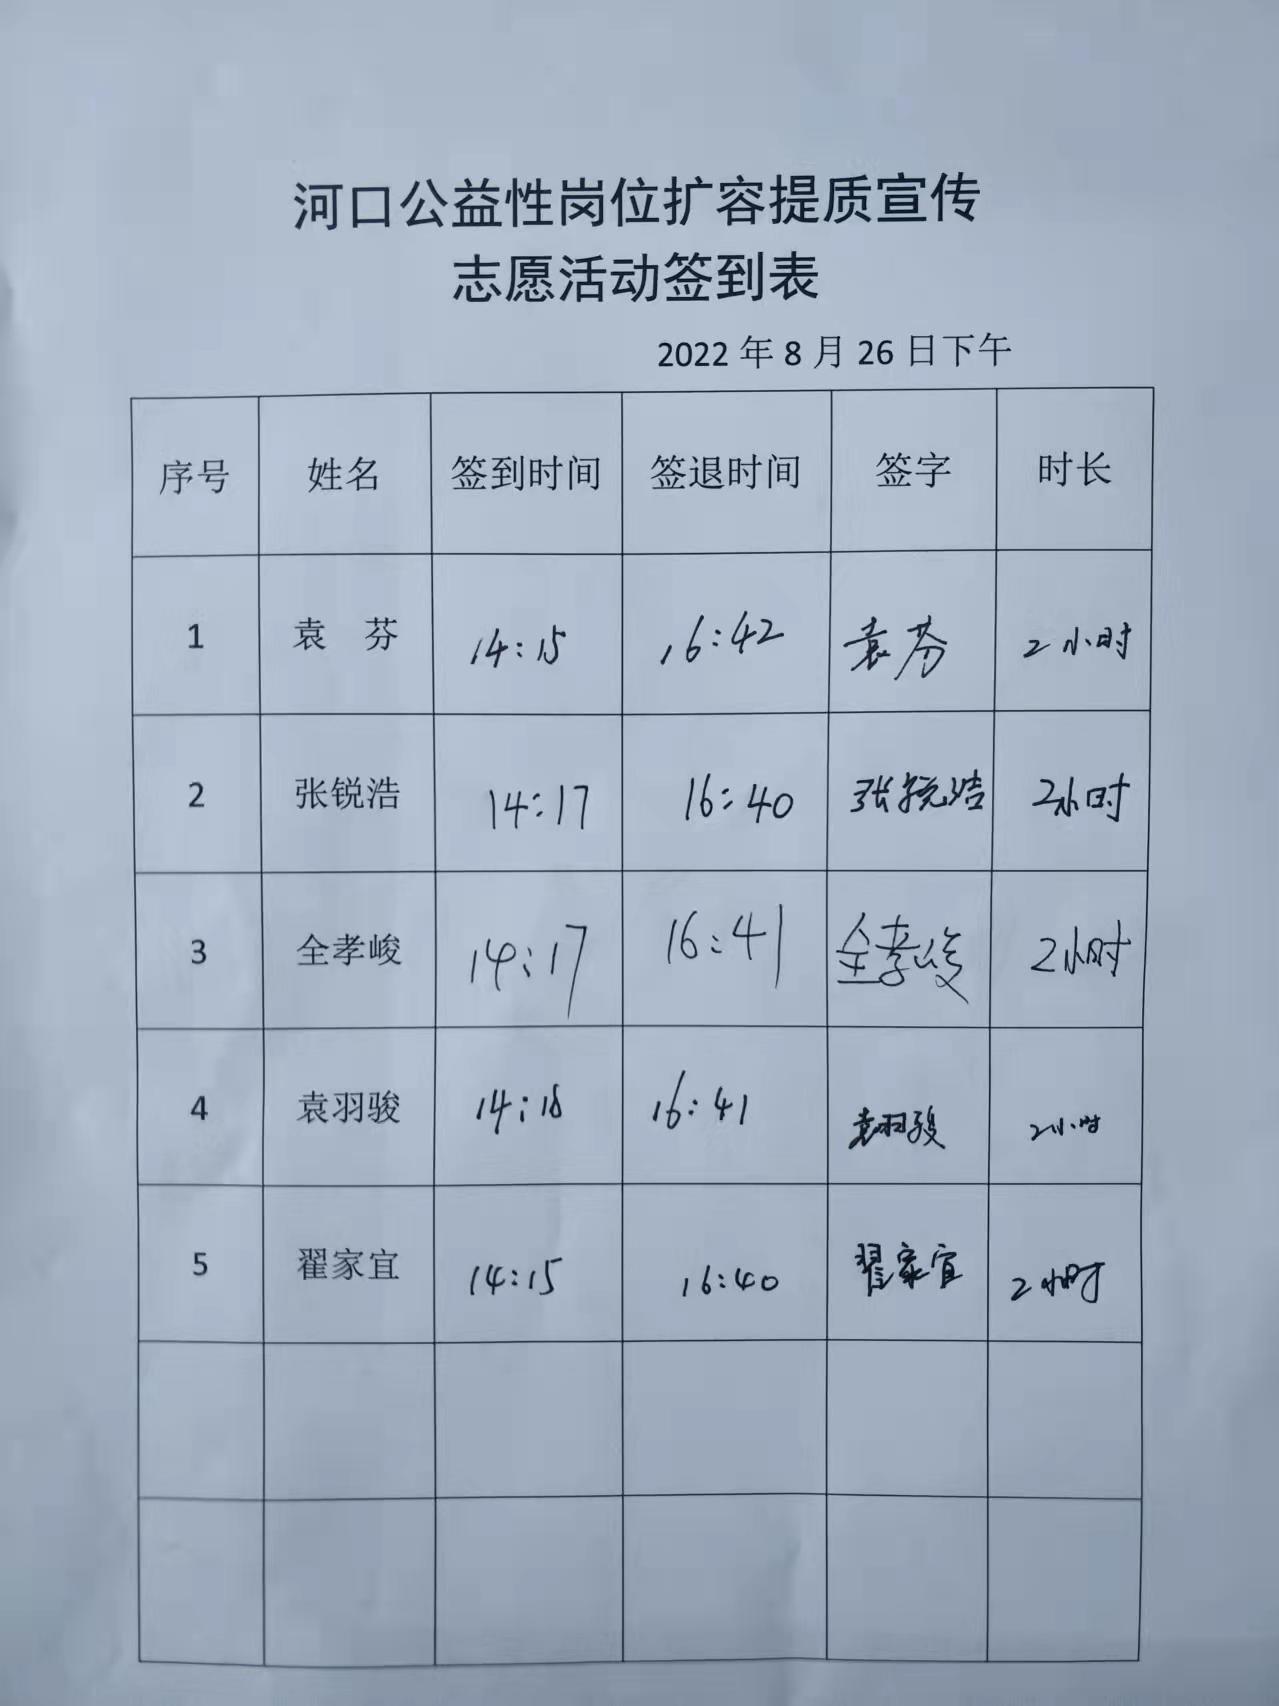 河口公益性岗位扩容提质宣传
志愿活动签到表
2022 年 8 月 26 日下午
序号 姓名 签到时间 签退时间 签字 时长
1 袁 芬 14:15 16:42 袁芬 2小时
2 张锐浩 14:17 16:40 张锐浩 2小时
3 全孝峻 14:17 16:41 全孝峻 2小时
4 袁羽骏 14:18 16:41 袁羽骏 2小时
5 翟家宜 14:15 16:40 翟家宜 2小时